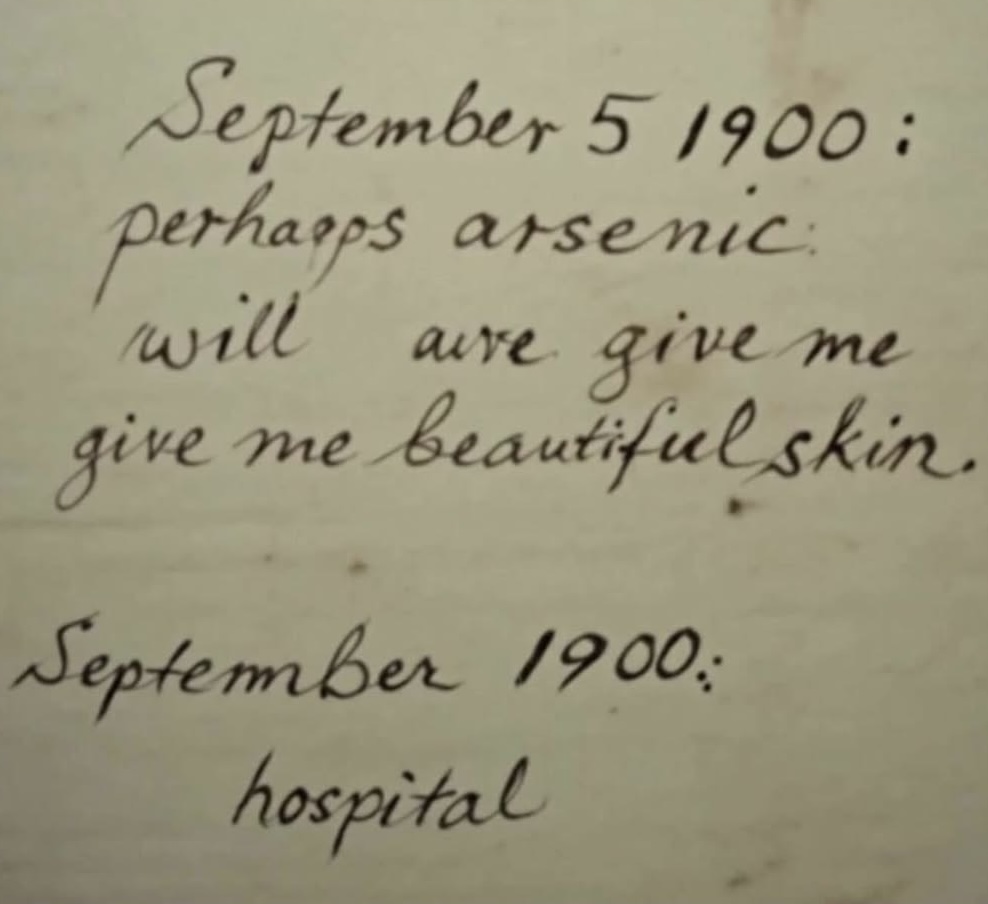 September 5 1900:
perhapps arsenic:
will aure give me
give me beautiful skin.
Septemnber 1900:
hospital